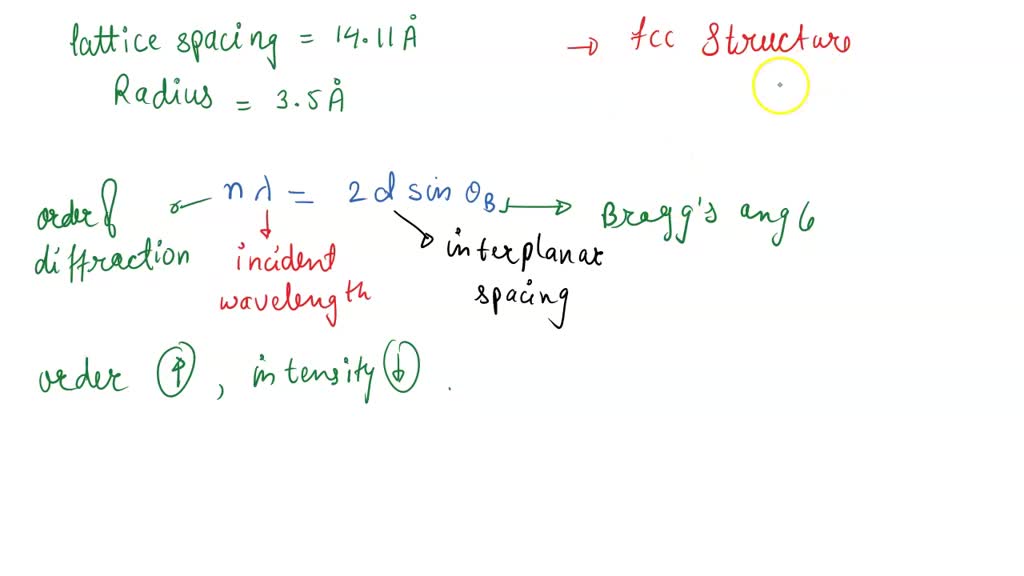 lattice spacing = 14.11 Å
→ fcc Structure
Radius = 3.5 Å
nλ = 2 d sin θB → Bragg's angle
order of diffraction
incident wavelength
interplanar spacing
order ↑, intensity ↓.